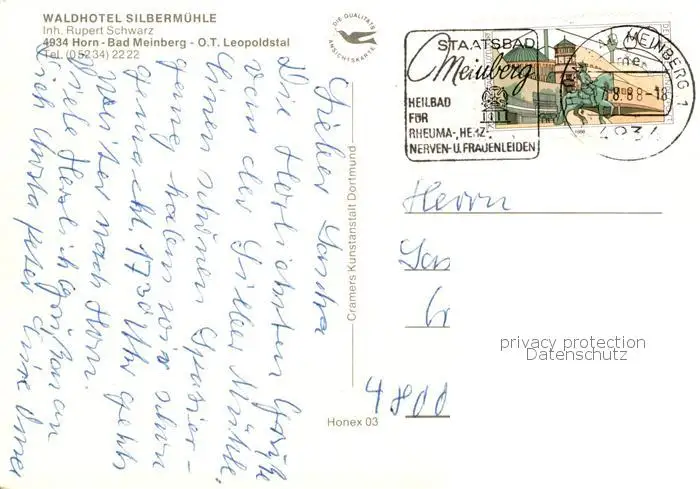 WALDHOTEL SILBERMÜHLE
Inh. Rupert Schwarz
4934 Horn - Bad Meinberg - O.T. Leopoldstal
Tel. (05234) 2222
DIE QUALITÄTS
ANSICHTSKARTE
STAATSBAD
Meinberg
HEILBAD
FÜR
RHEUMA-, HERZ-
NERVEN- U. FRAUENLEIDEN
MEINBERG 1
8.88-18
4934
Lieber
Die herzlichsten Grüße
von der Silber Mühle,
Einen schönen Spazier-
gang haben wir schon
gemacht. 17 30 Uhr geht's
weiter nach Horn.
Viele Herzliche Grüße an
Dich Peter Deine Oma
Cramers Kunstanstalt Dortmund
Honex 03
Herrn
4800
privacy protection
Datenschutz